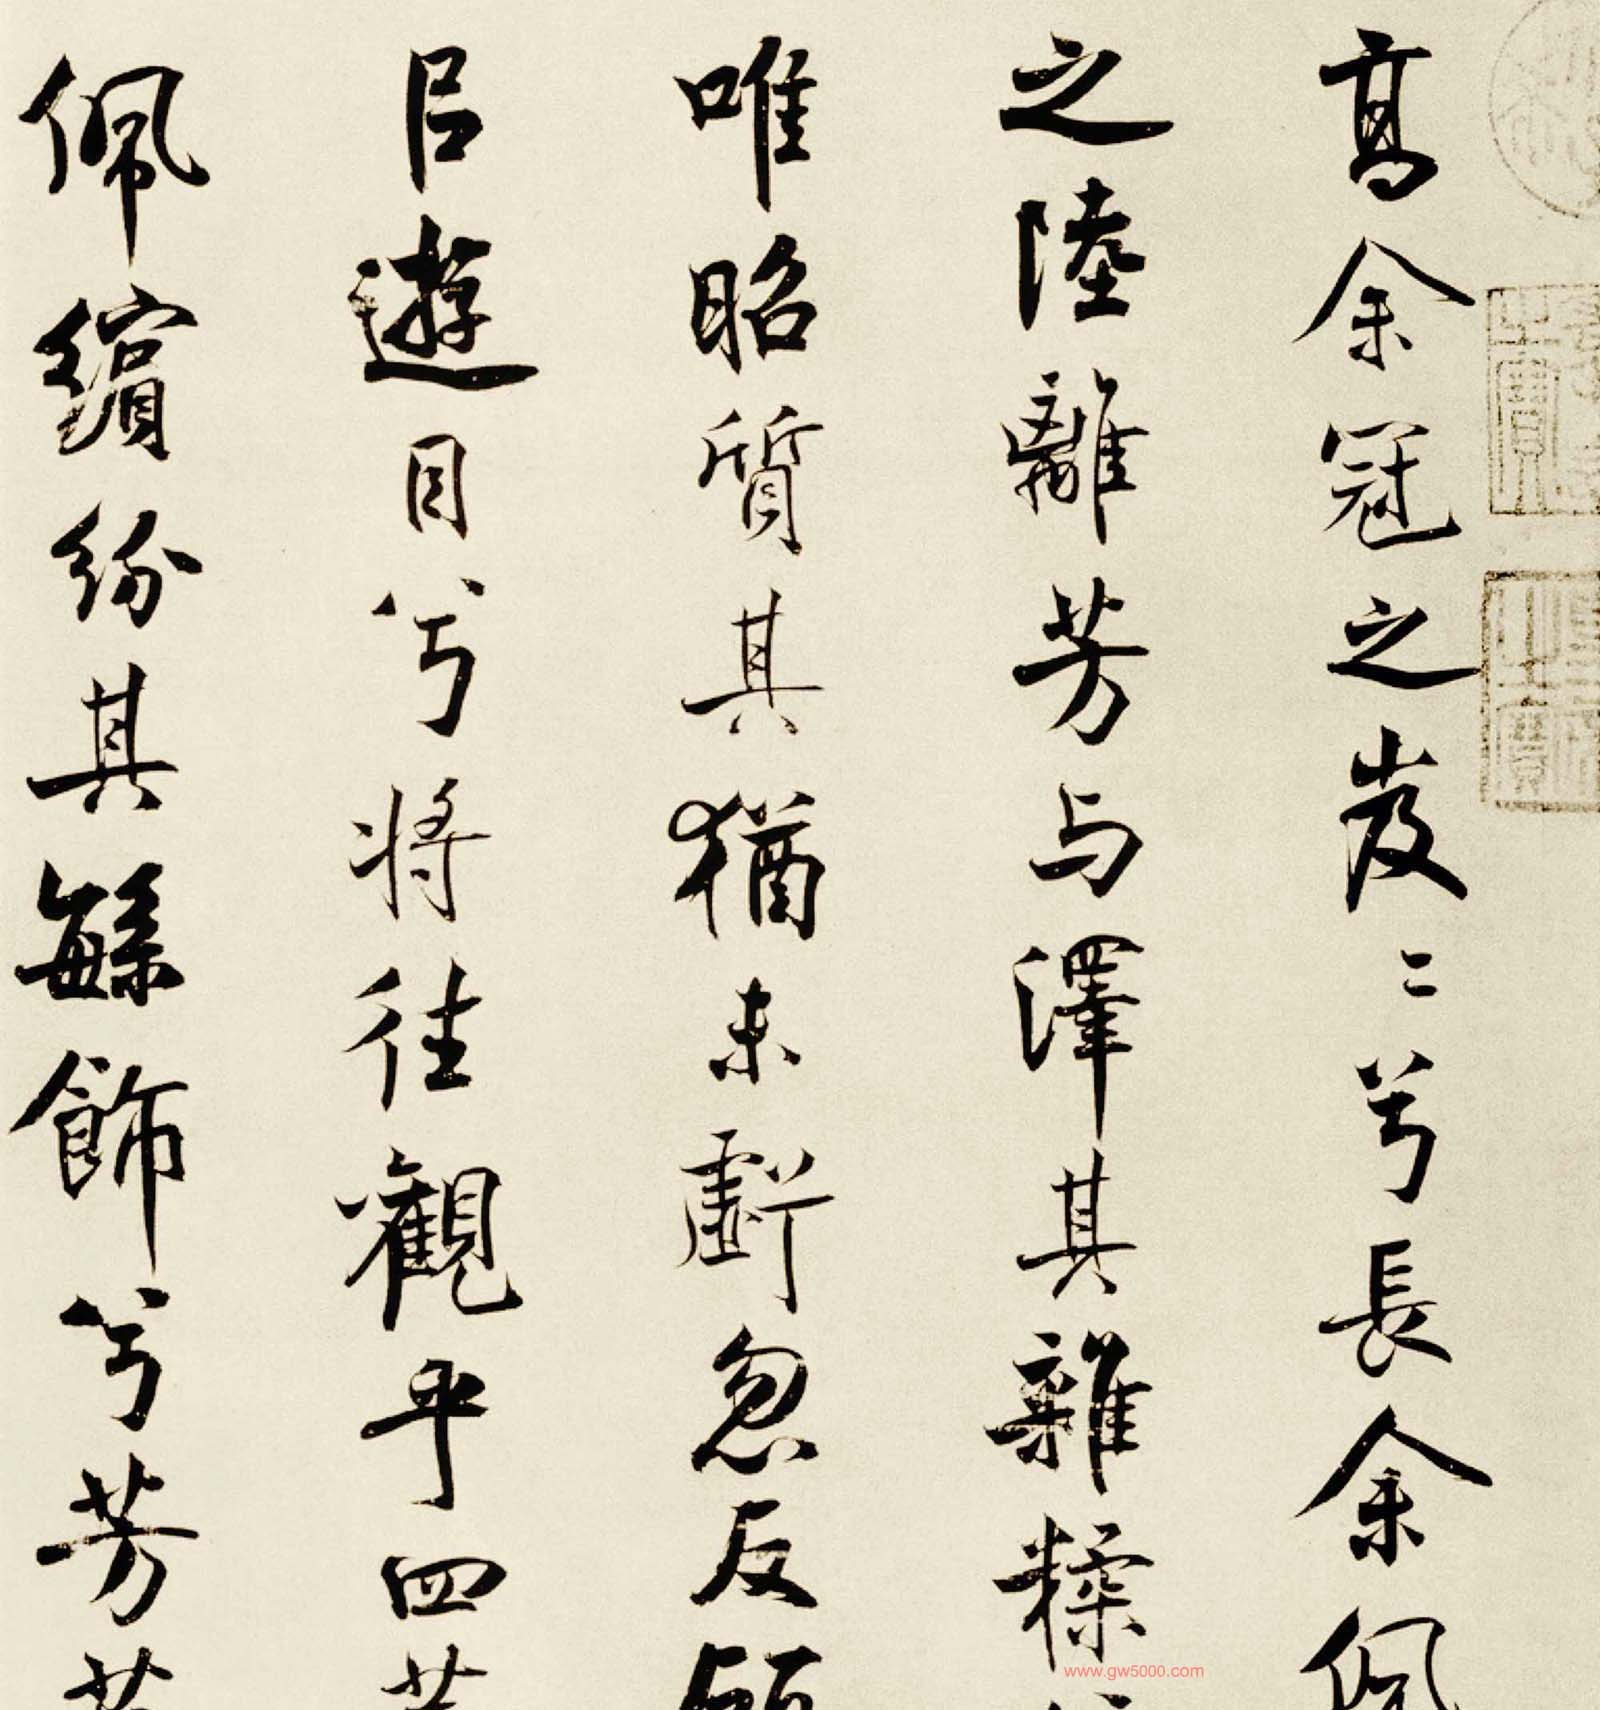 高余冠之岌〻兮長余佩
之陸離芳与澤其雜糅
唯昭質其猶未虧忽反顧
㠯遊目兮將往觀乎四荒
佩繽紛其繁飾兮芳菲
www.gw5000.com